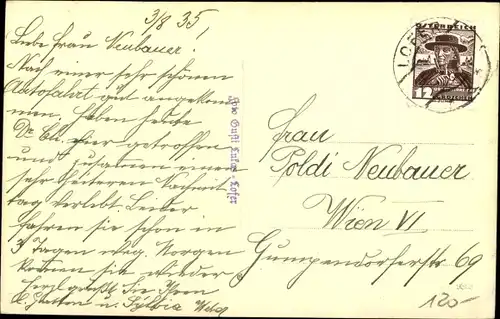 3/8 35
Liebe Frau Neubauer!
Nach einer sehr schönen
Autofahrt gut angekom
men, haben heute
Dr. hier getroffen
und zusammen einen
sehr heiteren Nachmit
tag verlebt. Leider
fahren sie schon in
3 Tagen weg. Morgen
kommen sie wieder
Herzl. grüßt Sie Ihren
Gatten u. Sylvia
Foto Gustl Lofer
LOFER
ÖSTERREICH
12 GROSCHEN
Frau
Poldi Neubauer
Wien VI
Gumpendorferstr 69
120-